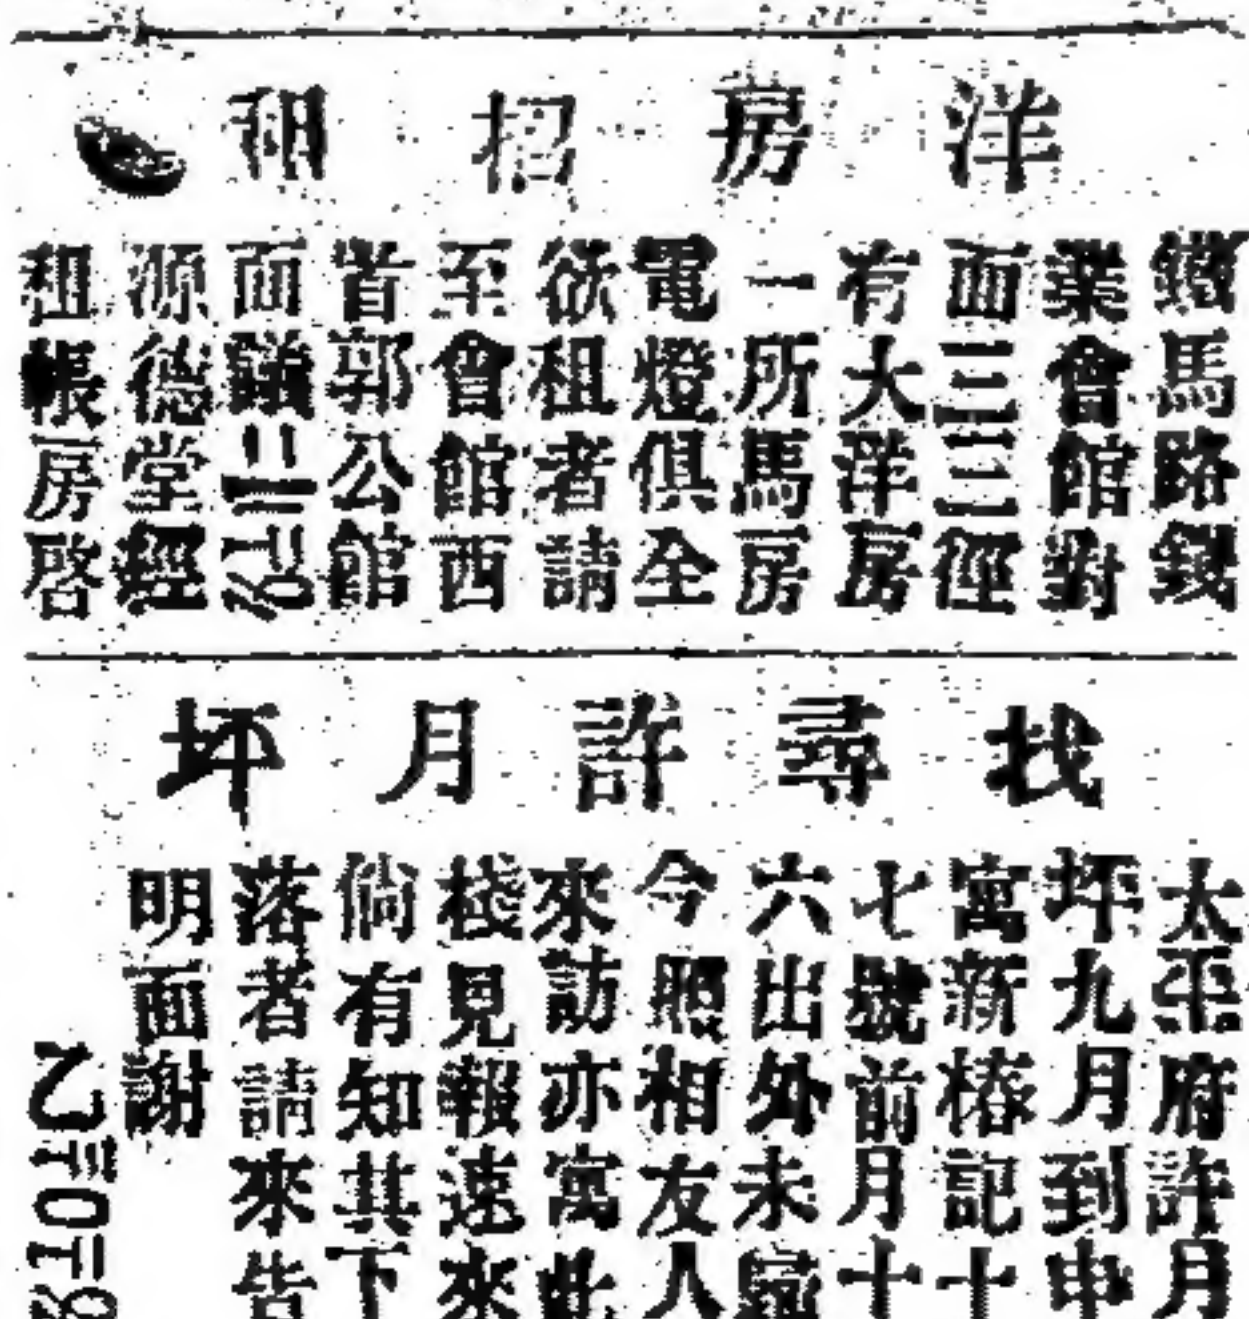 洋房招租
鐵馬路錢
業會館對
面三三徑
有大洋房
一所馬房
電燈俱全
欲租者請
至會館西
首郭公館
面議
源德堂經
租帳房啓
找尋許月坪
太平府許月
坪九月到申
寓新椿記十
七號前月十
六出外未歸
今照相友人
來訪亦寓此
棧見報速來
倘有知其下
落者請來告
明面謝